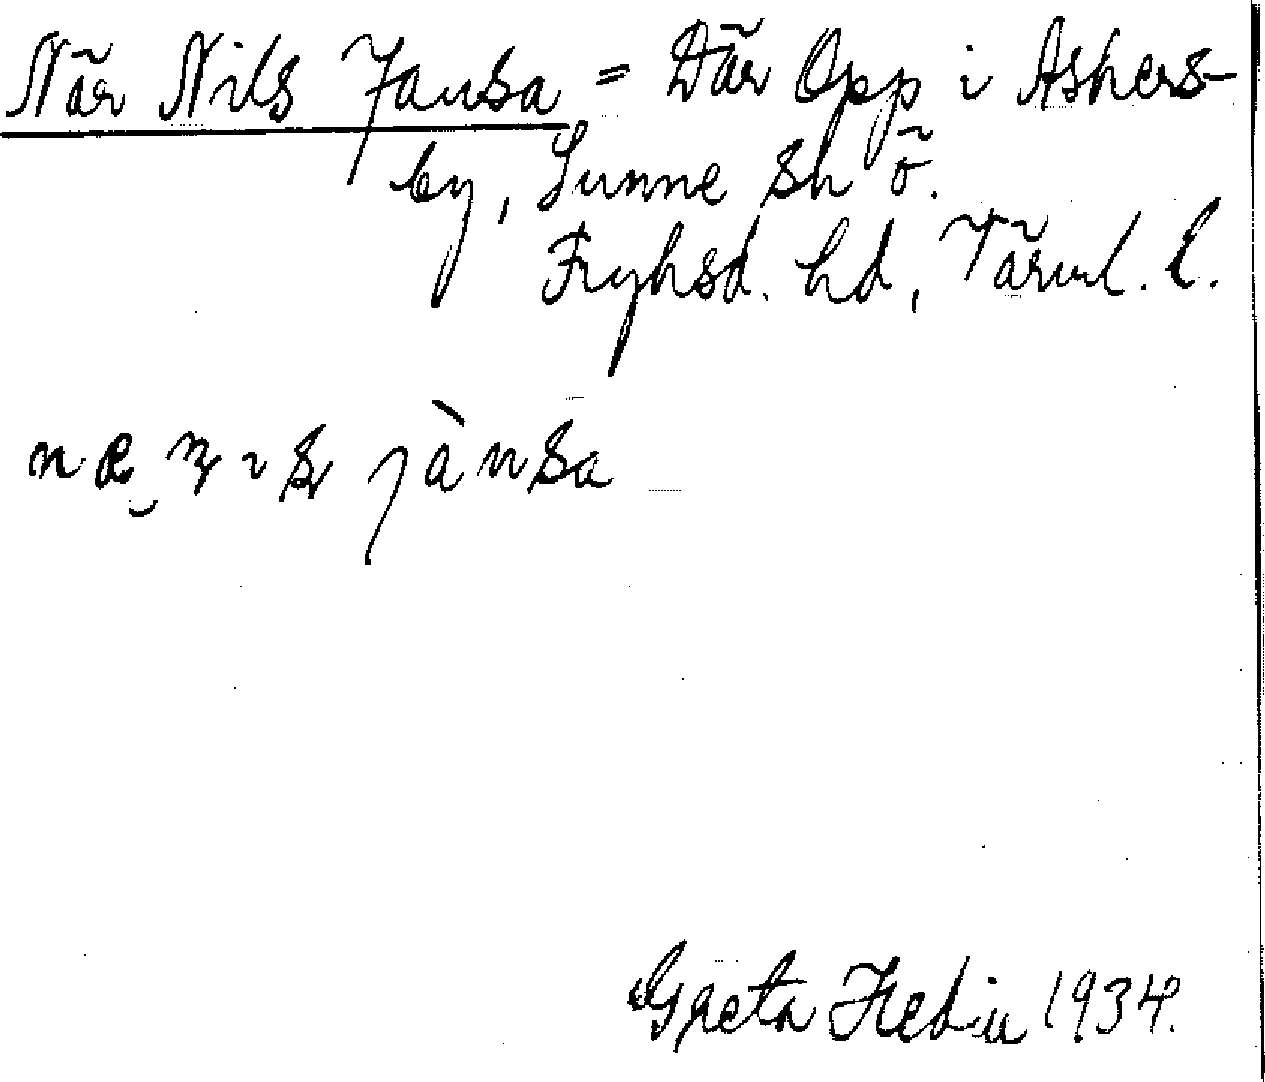 När Nils Jansa = Där Opp i Askers-
by, Sunne sk ö.
Fryksd. hd, Värml. l.
jànsa
Greta Hedin 1934.